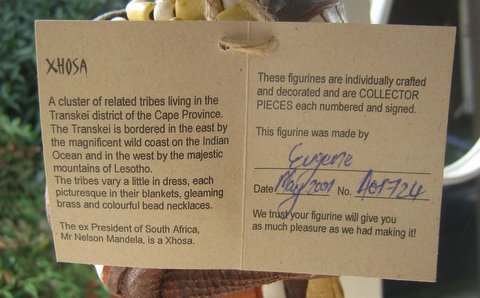 XHOSA
A cluster of related tribes living in the
Transkei district of the Cape Province.
The Transkei is bordered in the east by
the magnificent wild coast on the Indian
Ocean and in the west by the majestic
mountains of Lesotho.
The tribes vary a little in dress, each
picturesque in their blankets, gleaming
brass and colourful bead necklaces.
The ex President of South Africa,
Mr Nelson Mandela, is a Xhosa.
These figurines are individually crafted
and decorated and are COLLECTOR
PIECES each numbered and signed.
This figurine was made by
Eugene
Date May 2001 No.
We trust your figurine will give you
as much pleasure as we had making it!